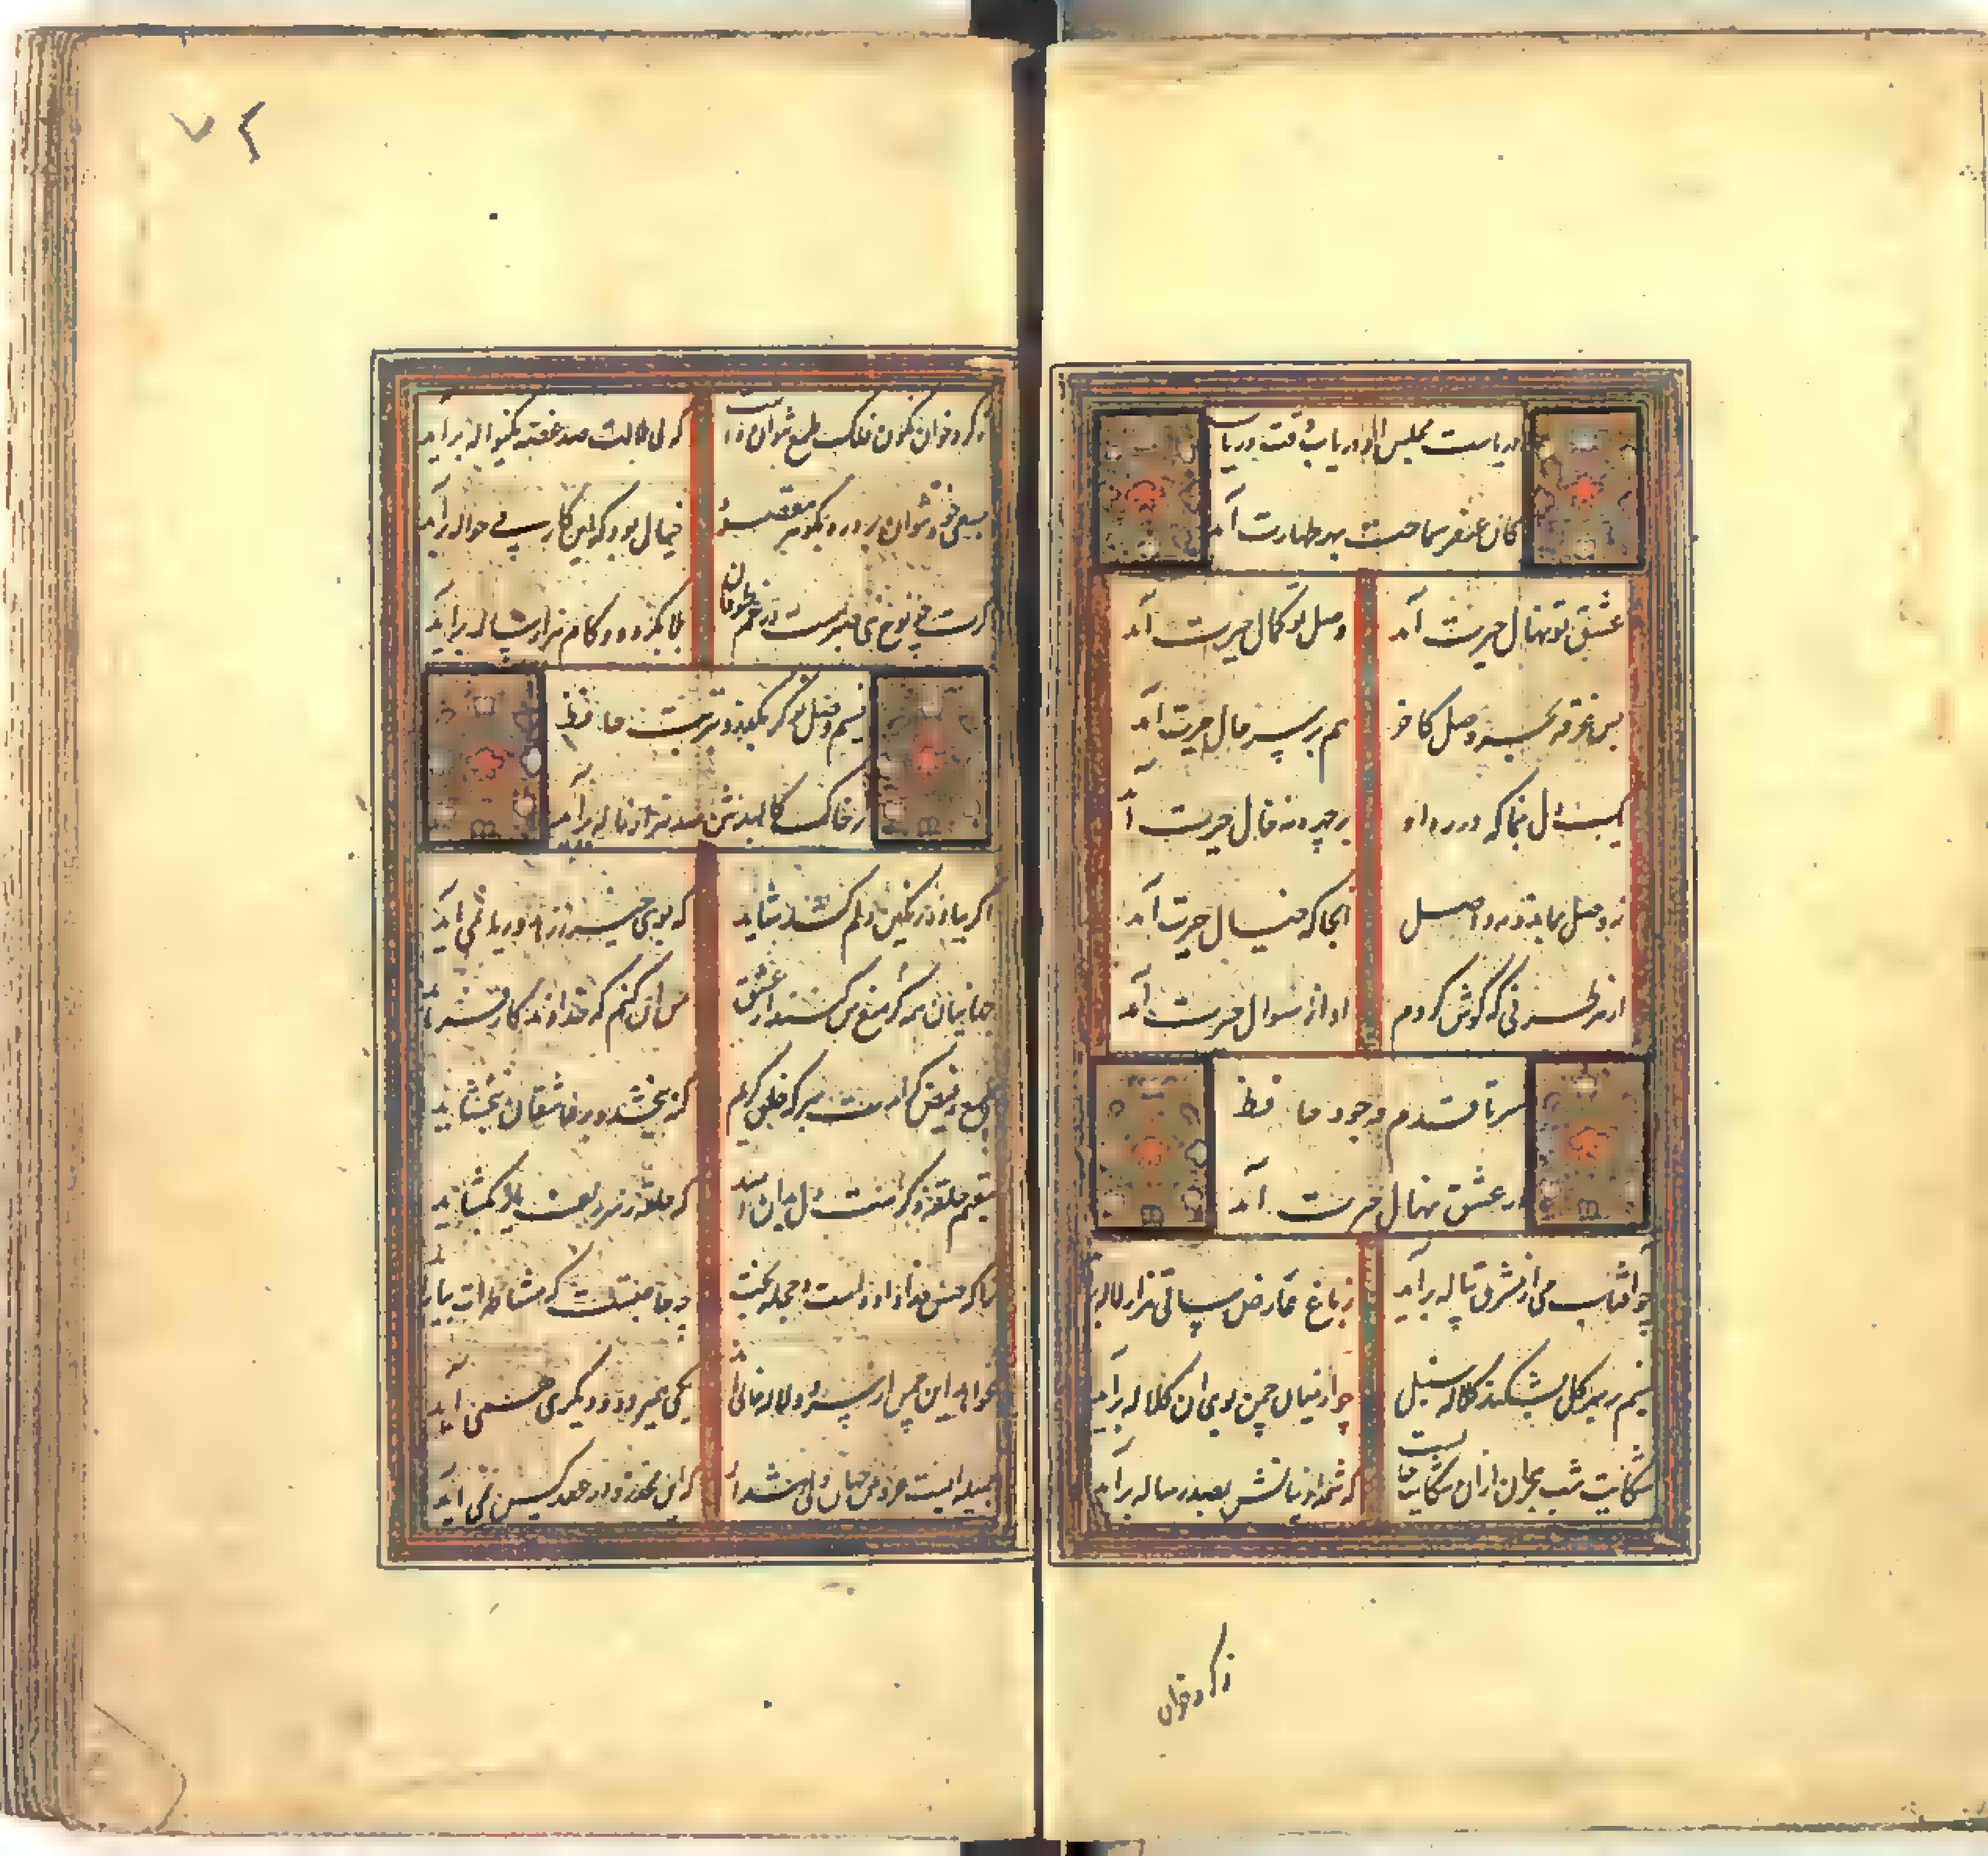 دریاست مجلس او دریاب وقت و دریاب
کان عنصر سماحت بهر طهارت آمد
عشق تو نهال حیرت آمد وصل تو کمال حیرت آمد
بس غرقه بحر وصل کاخر هم بر سر حال حیرت آمد
یک دل بنما که در ره او بر چهره نه خال حیرت آمد
نه وصل بماند و نه واصل آنجا که خیال حیرت آمد
از هر طرفی که گوش کردم آواز سوال حیرت آمد
سر تا قدم وجود حافظ
در عشق نهال حیرت آمد
چو آفتاب می از مشرق پیاله برآید ز باغ عارض ساقی هزار لاله
نسیم بر سر گل بشکند کلاله سنبل چو از میان چمن بوی آن کلاله برآید
شکایت شب هجران نه آن شکایت که شمه از بیانش بصد رساله برآید
ز گرد خوان
۷۲
ز گرد خوان نگون فلک طمع نتوان داشت که بی ملالت صد غصه یک نواله برآید
بسعی خود نتوان برد ره بگوهر مقصود خیال بود که این کار بی حواله برآید
گرت چو نوح نبی صبر هست در غم طوفان بلا بگردد و کام هزار ساله برآید
نسیم وصل تو گر بگذرد بتربت حافظ
ز خاک کالبدش صد هزار ناله برآید
اگر بباده رنگین دلم کشد شاید که بوی خیر ز زهد و ریا نمی آید
جهانیان همه گر منع من کنند از عشق من آن کنم که خداوندگار فرماید
طمع ز فیض کرامت مبر که خلق کریم گنه ببخشد و بر عاشقان ببخشاید
مقیم حلقه ذکر است دل بدان امید که حلقه ز سر زلف یار بگشاید
ترا که حسن خداداده است و حجله بخت چه حاجتست که مشاطه ات بیاراید
نخواهد این چمن از سرو و لاله خالی یکی همی رود و دیگری همی آید
جمیله ایست عروس جهان ولی هش دار که این مخدره در عقد کس نمی آید